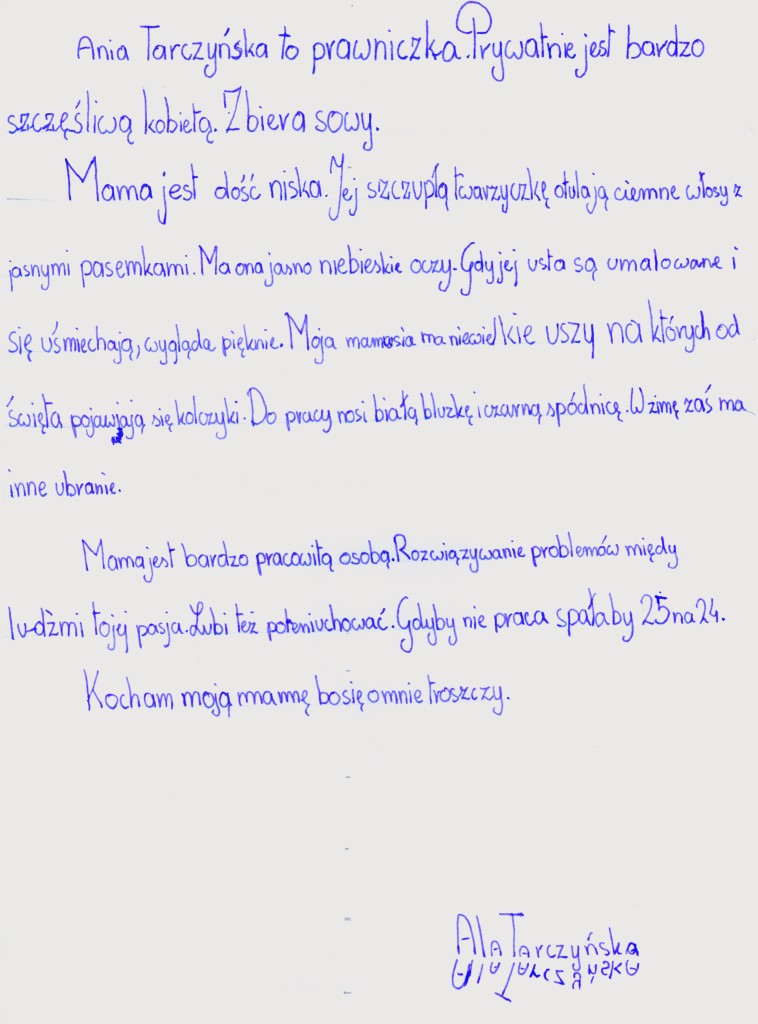 Ania Tarczyńska to prawniczka. Prywatnie jest bardzo
szczęśliwą kobietą. Zbiera sowy.
Mama jest dość niska. Jej szczupłą twarzyczkę otulają ciemne włosy z
jasnymi pasemkami. Ma ona jasno niebieskie oczy. Gdy jej usta są umalowane i
się uśmiechają, wygląda pięknie. Moja mamusia ma niewielkie uszy na których od
święta pojawjają się kolczyki. Do pracy nosi białą bluzkę i czarną spódnicę. W zimę zaś ma
inne ubranie.
Mama jest bardzo pracowitą osobą. Rozwiązywanie problemów międy
ludźmi to jej pasja. Lubi też poleniuchować. Gdyby nie praca spałaby 25 na 24.
Kocham moją mamnę bo się o mnie troszczy.
Ala Tarczyńska
Ala Tarczyńska